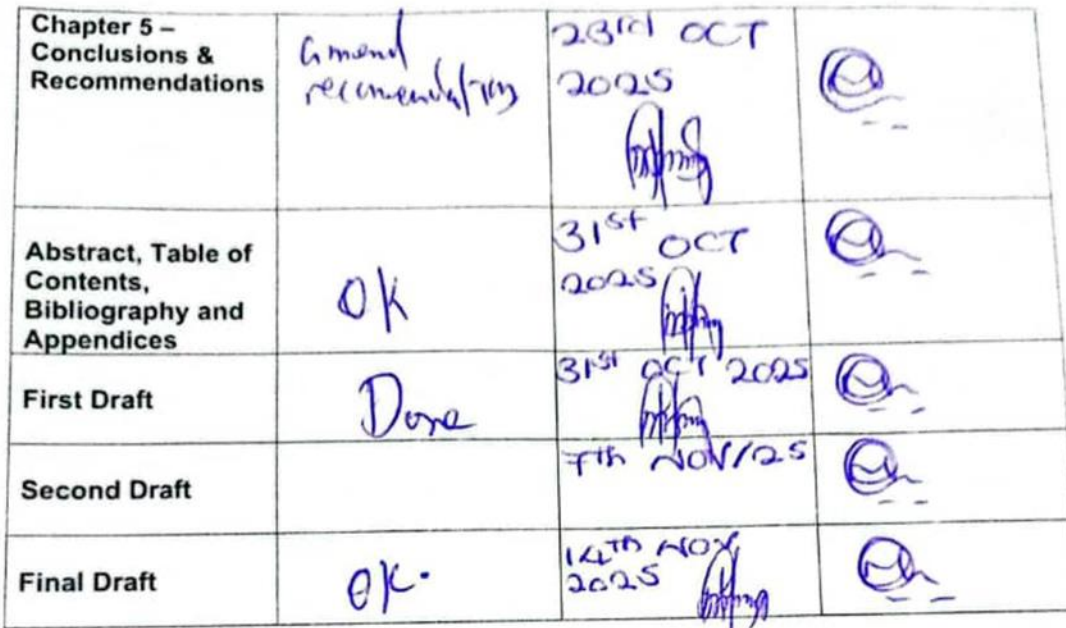 Chapter 5 –
Conclusions &
Recommendations
amend
recommendations
23rd OCT
2025
Abstract, Table of
Contents,
Bibliography and
Appendices
OK
31st OCT
2025
First Draft
Done
31st OCT 2025
Second Draft
7th NOV/25
Final Draft
OK.
14TH NOV
2025